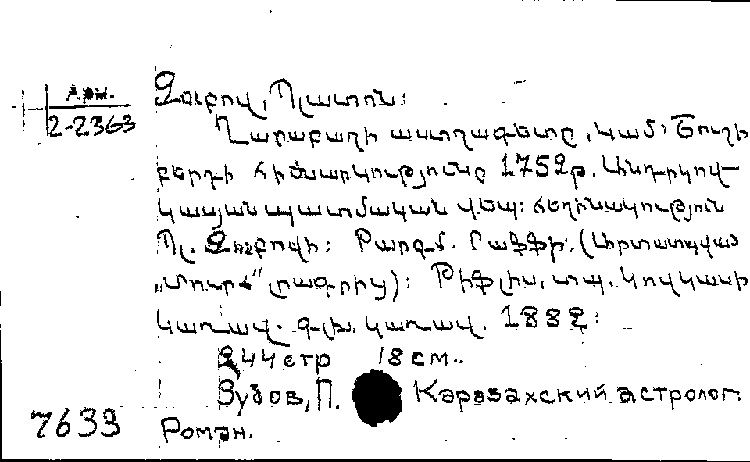 Арм.
2-2363
Զուբով, Պլատոն:
Ղարաբաղի աստղագետը, կամ՝ Շուշի
բերդի հիմնարկությունը 1752թ. Անդրկով-
կասյան պատմական վեպ: Հեղինակություն
Պլ. Զուբովի: Թարգմ. Րաֆֆի. (Արտատպված
„Մուրճ“ լրագրից): Թիֆլիս, տպ. Կովկասի
կառավ. գլխ. կառավ. 1882:
244стр 18см.
Зубов, П. Карабахский астролог.
7633
Роман.